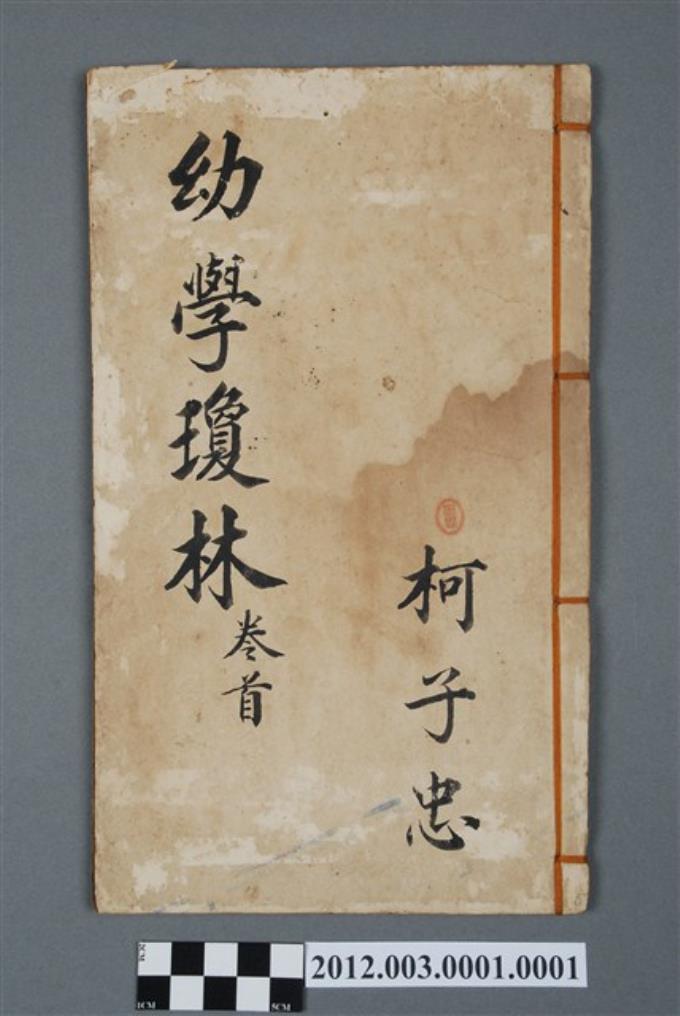 幼學瓊林
卷首
柯子忠
2012.003.0001.0001
2CM
1CM
5CM